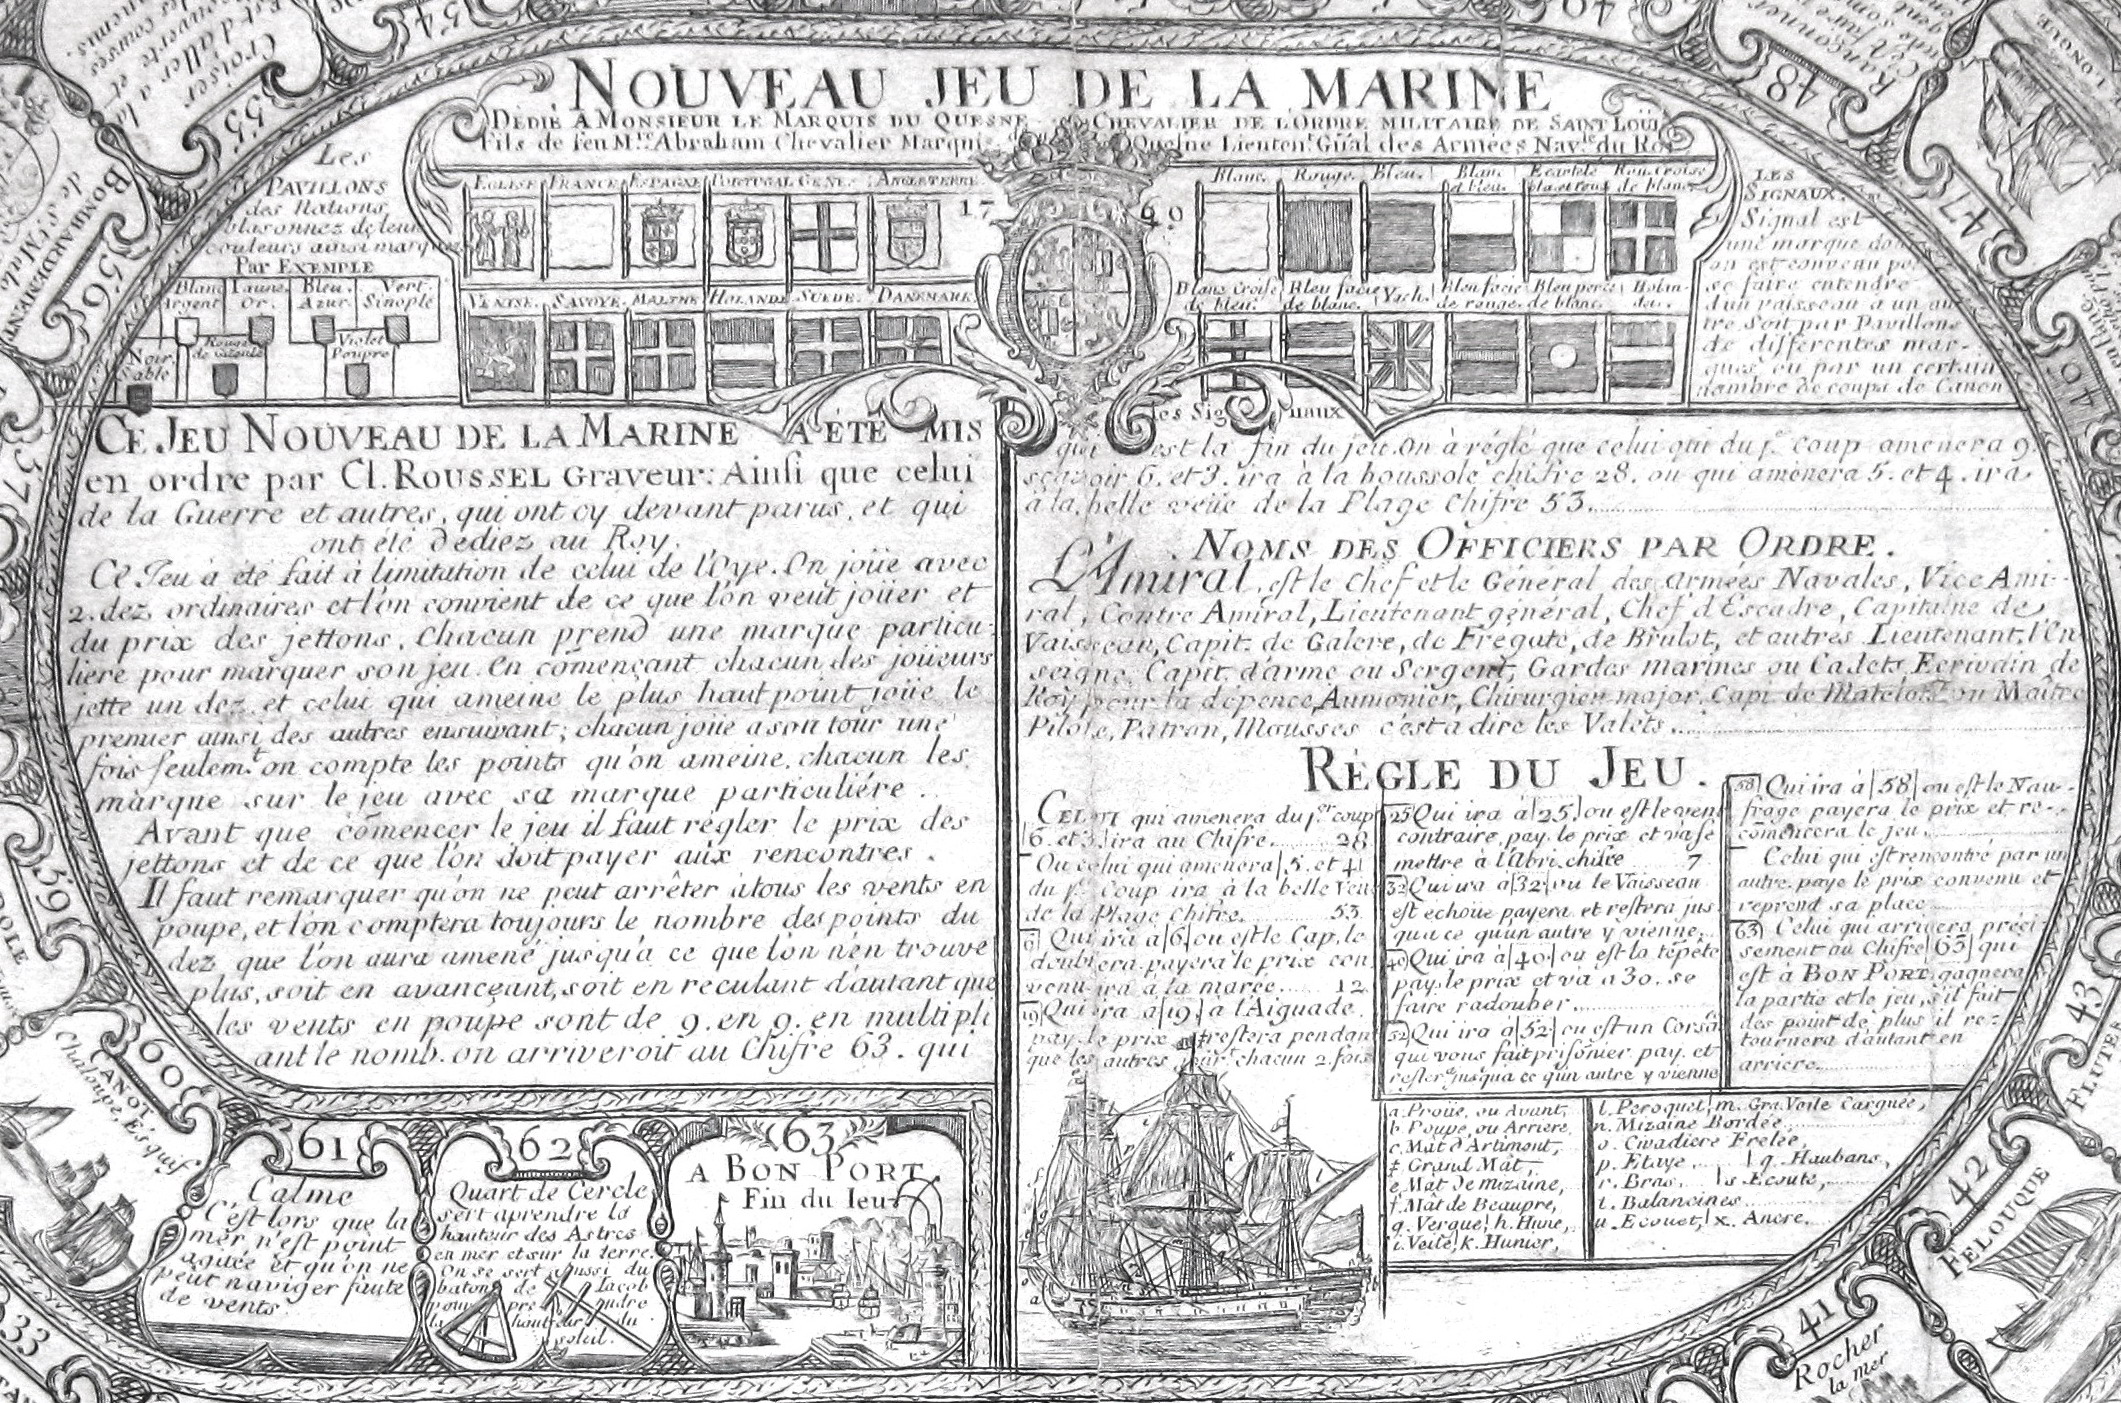 NOUVEAU JEU DE LA MARINE
DÉDIÉ A MONSIEUR LE MARQUIS DU QUESNE CHEVALIER DE L'ORDRE MILITAIRE DE SAINT LOUIS
Fils de feu M.re Abraham Chevalier Marquis Quesne Lieuten.t Gñal des Armées Nav.le du Roy
Les
PAVILLONS
des Nations
blasonnez de leur
couleurs ainsi marquez
Par EXEMPLE
Blanc Iaune Bleu Vert
Argent Or. Azur Sinople
Noir Rouge Violet
Sable de gueule Poupre
EGLISE FRANCE ESPAGNE PORTUGAL GENE. ANGLETERRE.
17 60
VENISE. SAVOYE. MALTHE HOLANDE SUEDE. DANEMARK.
Blanc. Rouge. Bleu. Blanc Ecartelé Rou. Croise
et bleu. bla et rou de blanc
Blanc Croise Bleu facie Yach. Bleu facie Bleu percé Holan
de bleu. de blanc. de rouge. de blanc. dai.
LES
SIGNAUX.
Signal est
une marque dont
on est convenu pr
se faire entendre
d'un vaisseau a un au
tre. Soit par Pavillons
de differentes mar-
ques ou par un certain
nombre de coups de Canon
les Sig naux
CE JEU NOUVEAU DE LA MARINE A ÉTÉ MIS
en ordre par Cl. ROUSSEL Graveur: Ainsi que celui
de la Guerre et autres, qui ont cy devant parus, et qui
ont été dediez au Roy.
Ce Jeu à été fait à limitation de celui de l'Oye. On joüe avec
2. dez ordinaires et l'on convient de ce que l'on veut joüer et
du prix des jettons. Chacun prend une marque particu-
liere pour marquer son jeu. En cómençant chacun des joüeurs
jette un dez et celui qui ameine le plus haut point joüe le
premier ainsi des autres ensuivant; chacun joüe a son tour une
fois seulem.t on compte les points qu'on ameine. chacun les
marque sur le jeu avec sa marque particuliére.
Avant que cómencer le jeu il faut régler le prix des
jettons et de ce que l'on doit payer aux rencontres.
Il faut remarquer qu'on ne peut arrêter à tous les vents en
poupe, et l'on comptera toujours le nombre des points du
dez que l'on aura amené jusqu'à ce que l'on n'en trouve
plus, soit en avançeant, soit en reculant d'autant que
les vents en poupe sont de 9. en 9. en multipli
ant le nomb. on arriveroit au Chifre 63. qui
qui est la fin du jeu. On à réglé que celui qui du p.r coup amenera 9
sçavoir 6. et 3. ira à la boussole chifre 28. ou qui amènera 5. et 4. ira
à la belle veüe de la Plage Chifre 53.
NOMS DES OFFICIERS PAR ORDRE.
L'Amiral, est le Chef et le Général des armées Navales, Vice Ami-
ral, Contre Amiral, Lieutenant général, Chef d'Escadre, Capitaine de
Vaisseau, Capit. de Galere, de Fregate, de Brulot, et autres. Lieutenant, l'En
seigne, Capit. d'arme ou Sergent, Gardes marines ou Cadets, Ecrivain de
Roy pour la dépence, Aumonier, Chirurgien major, Capi. de Matelots ou Maître
Pilote, Patron, Mousses c'est a dire les Valets.
RÈGLE DU JEU.
CELUI qui amenera du p.er coup
6. et 3. ira au Chifre. 28
Ou celui qui amenera 5. et 4
du p.r Coup ira à la belle Veue
de la Plage chifre. 53.
6 Qui ira à 6 ou est le Cap, le
doublera. payera le prix con
venu ira à la marée. 12
19 Qui ira a 19 a l'Aiguade.
pay. le prix et restera pendan
que les autres joür chacun 2. fois
25 Qui ira à 25. ou est le vent
contraire, pay. le prix et va se
mettre à l'Abri chifre 7.
32 Qui ira à 32 ou le Vaisseau
est echoüe payera et restera jus
qua ce qu'un autre y vienne.
40 Qui ira à 40. ou est la tépéte
pay. le prix et va a 30. se
faire radouber
52 Qui ira à 52 ou est un Corsa
qui vous fait prisonier pay. et
rester jusqua ce qun autre y vienne
58 Qui ira à 58 ou est le Nau-
frage payera le prix et re-
cómencera le jeu.
Celui qui est rencontré par un
autre. paye le prix convenu et
reprend sa place
63 Celui qui arrivera préci
sement au Chifre 63 qui
est à BON PORT, gagnera
la partie et le jeu, s'il fait
des point de plus il re-
tournera d'autant en
arriere.
a. Proüe, ou Avant,
b Poupe, ou Arriere,
c. Mât d'Artimont,
d. Grand Mât,
e. Mât de mizaine,
f. Mât de Beaupre,
g. Vergue, h. Hune,
i. Voile, k. Hunier,
l. Peroquet, m. Gra. Voile Carguée,
n. Mizaine Bordée,
o. Civadiere Frelée,
p. Etaye, q. Haubans,
r. Bras, s Ecoute,
t. Balancines
u. Ecouet, x. Ancre.
61
Calme
C'est lors que la
mer n'est point
agitée et qu'on ne
peut naviger faute
de vents
62
Quart de Cercle
sert a prendre la
hauteur des Astres
en mer et sur la terre.
On se sert aussi du
baton de Iacob
pour pre ndre
la hauteur du
soleil.
63
A BON PORT.
Fin du Ieu
60
CANOT
Chaloupe, Esquif
59
57
56
BOMBARDEMENT
de St. Malo
55
Croiser
C'est d'aller
54
33
40
48
Rançonner
47
LONGUE
43
FLUTE
42
FELOUQUE
41
Rocher
la mer